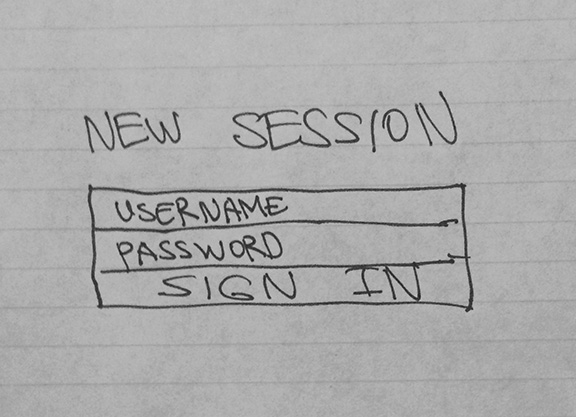 NEW SESSION
USERNAME
PASSWORD
SIGN IN